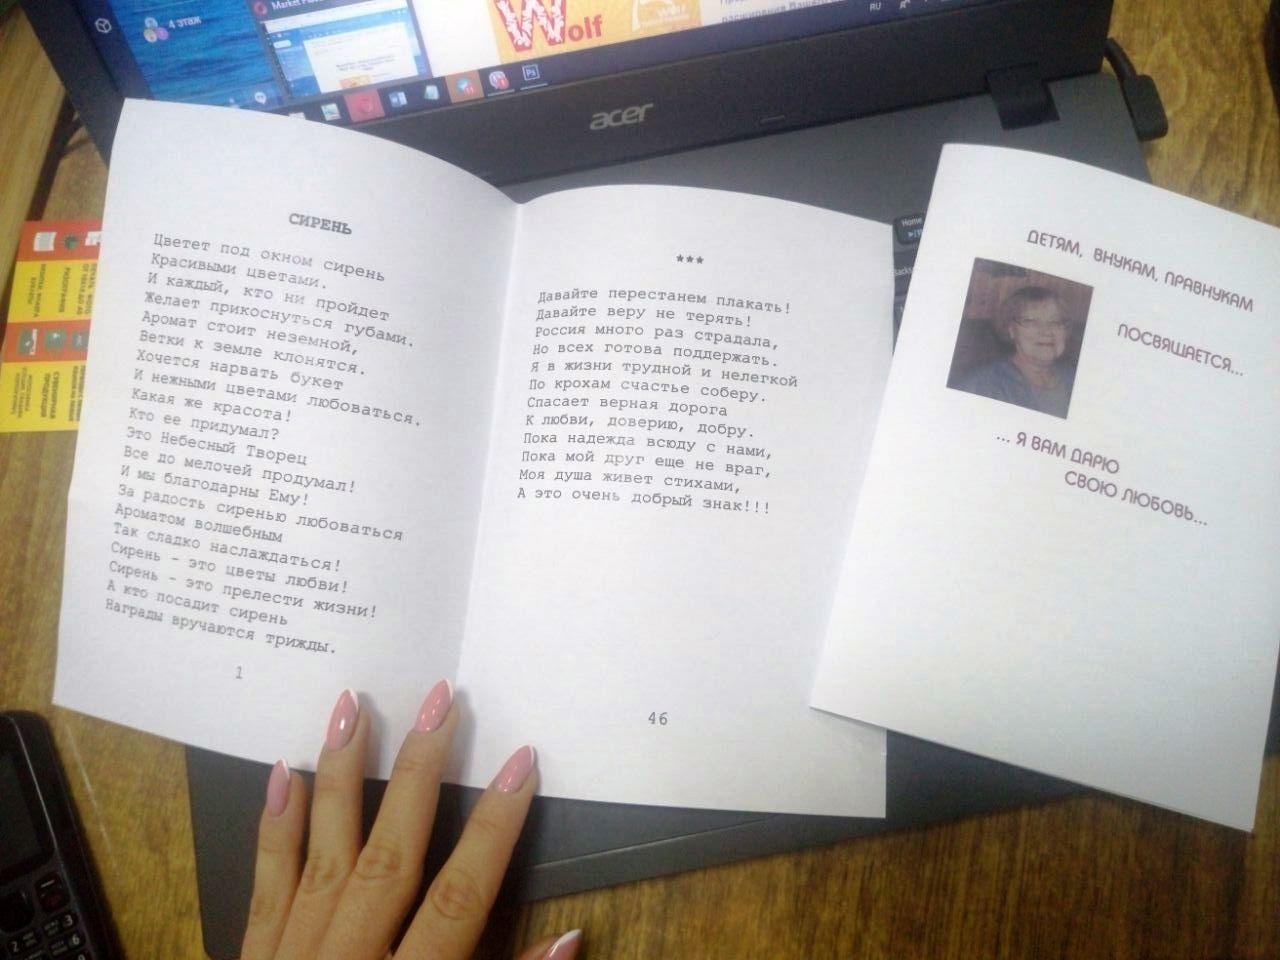 4 этаж
Wolf
RU
acer
Home
СИРЕНЬ
Цветет под окном сирень
Красивыми цветами.
И каждый, кто ни пройдет
Желает прикоснуться губами.
Аромат стоит неземной,
Ветки к земле клонятся.
Хочется нарвать букет
И нежными цветами любоваться.
Какая же красота!
Кто ее придумал?
Это Небесный Творец
Все до мелочей продумал!
И мы благодарны Ему!
За радость сиренью любоваться
Ароматом волшебным
Так сладко наслаждаться!
Сирень – это цветы любви!
Сирень – это прелести жизни!
А кто посадит сирень
Награды вручаются трижды.
1
***
Давайте перестанем плакать!
Давайте веру не терять!
Россия много раз страдала,
Но всех готова поддержать.
Я в жизни трудной и нелегкой
По крохам счастье соберу.
Спасает верная дорога
К любви, доверию, добру.
Пока надежда всюду с нами,
Пока мой друг еще не враг,
Моя душа живет стихами,
А это очень добрый знак!!!
46
ДЕТЯМ, ВНУКАМ, ПРАВНУКАМ
ПОСВЯЩАЕТСЯ...
... Я ВАМ ДАРЮ
СВОЮ ЛЮБОВЬ...